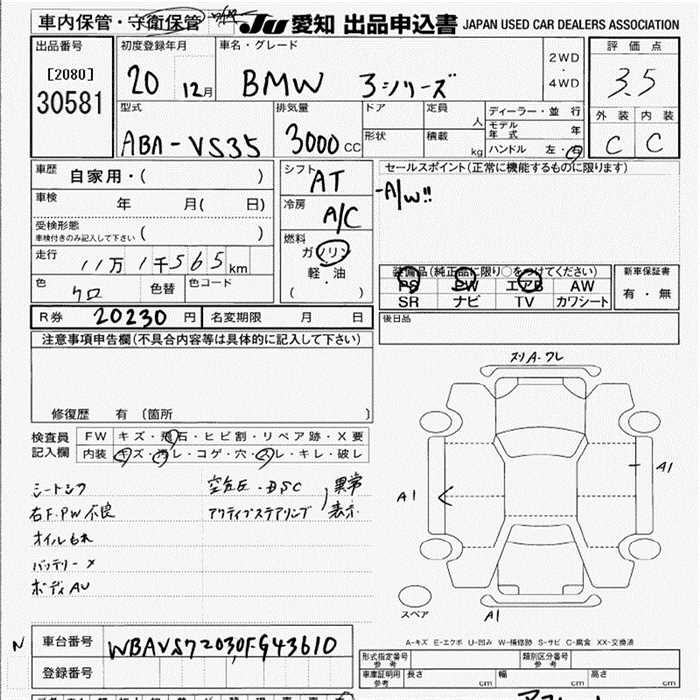 車内保管・守衛保管 JU 愛知 出品申込書 JAPAN USED CAR DEALERS ASSOCIATION
出品番号 [2080] 30581
初度登録年月 20 12月
車名・グレード BMW 3シリーズ
2WD・4WD
評価点 3.5
外装 C 内装 C
型式 ABA-VS35
排気量 3000 CC
ドア 定員 人
形状 積載 kg
ディーラー・並行
モデル年式 年
ハンドル 左・右
車歴 自家用・( )
シフト AT
セールスポイント(正常に機能するものに限ります)
-A/W!!
車検 年 月( 日)
冷房 A/C
受検形態
車検付きのみ記入して下さい ( )
走行 11万1千565km
燃料 ガソリン
軽・油
( )
色 クロ 色替 色コード
装備品(純正品に限り○をつけてください)
PS PW エアB AW
SR ナビ TV カワシート
新車保証書 有・無
R券 20230円 名変期限 月 日
後日品
注意事項申告欄(不具合内容等は具体的に記入して下さい)
修復歴 有 〔箇所 〕
検査員記入欄
FW キズ・飛石・ヒビ割・リペア跡・X要
内装 キズ・汚レ・コゲ・穴・スレ・キレ・破レ
シートシワ
右F.PW不良
オイルもれ
バッテリーX
ボディAU
空気圧・DSC
アクティブステアリング
異常表示
スリA・ワレ
A1
A1
A1
スペア
A-キズ E-エクボ U-凹み W-補修跡 S-サビ C-腐食 XX-交換済
N 車台番号 WBAVS72030FG43610
登録番号
形式指定番号 参考 類別区分番号 参考
車庫証明用 参考 長さ cm 幅 cm 高さ cm